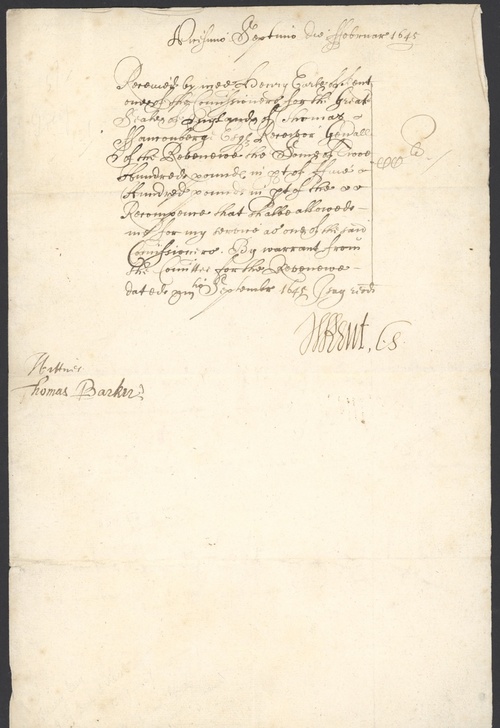 Vicesimo Septimo die ffebruar 1645
Received by mee Henry Earle of Kent
one of the Comissioners for the Great
Seale of England of Thomas
ffauconberge Esqr Receivor Genall
of the Revenewe the Some of Twoe
Hundred pounds in pt of ffive
Hundred pounds in pt of the
Recompence that shalbe allowed
me for my service as one of the said
Comissioners. By warrant from
the Comittee for the Revenewe
dated September 1645 I say recd
H Kent, C.S.
Wittnes
Thomas Barker